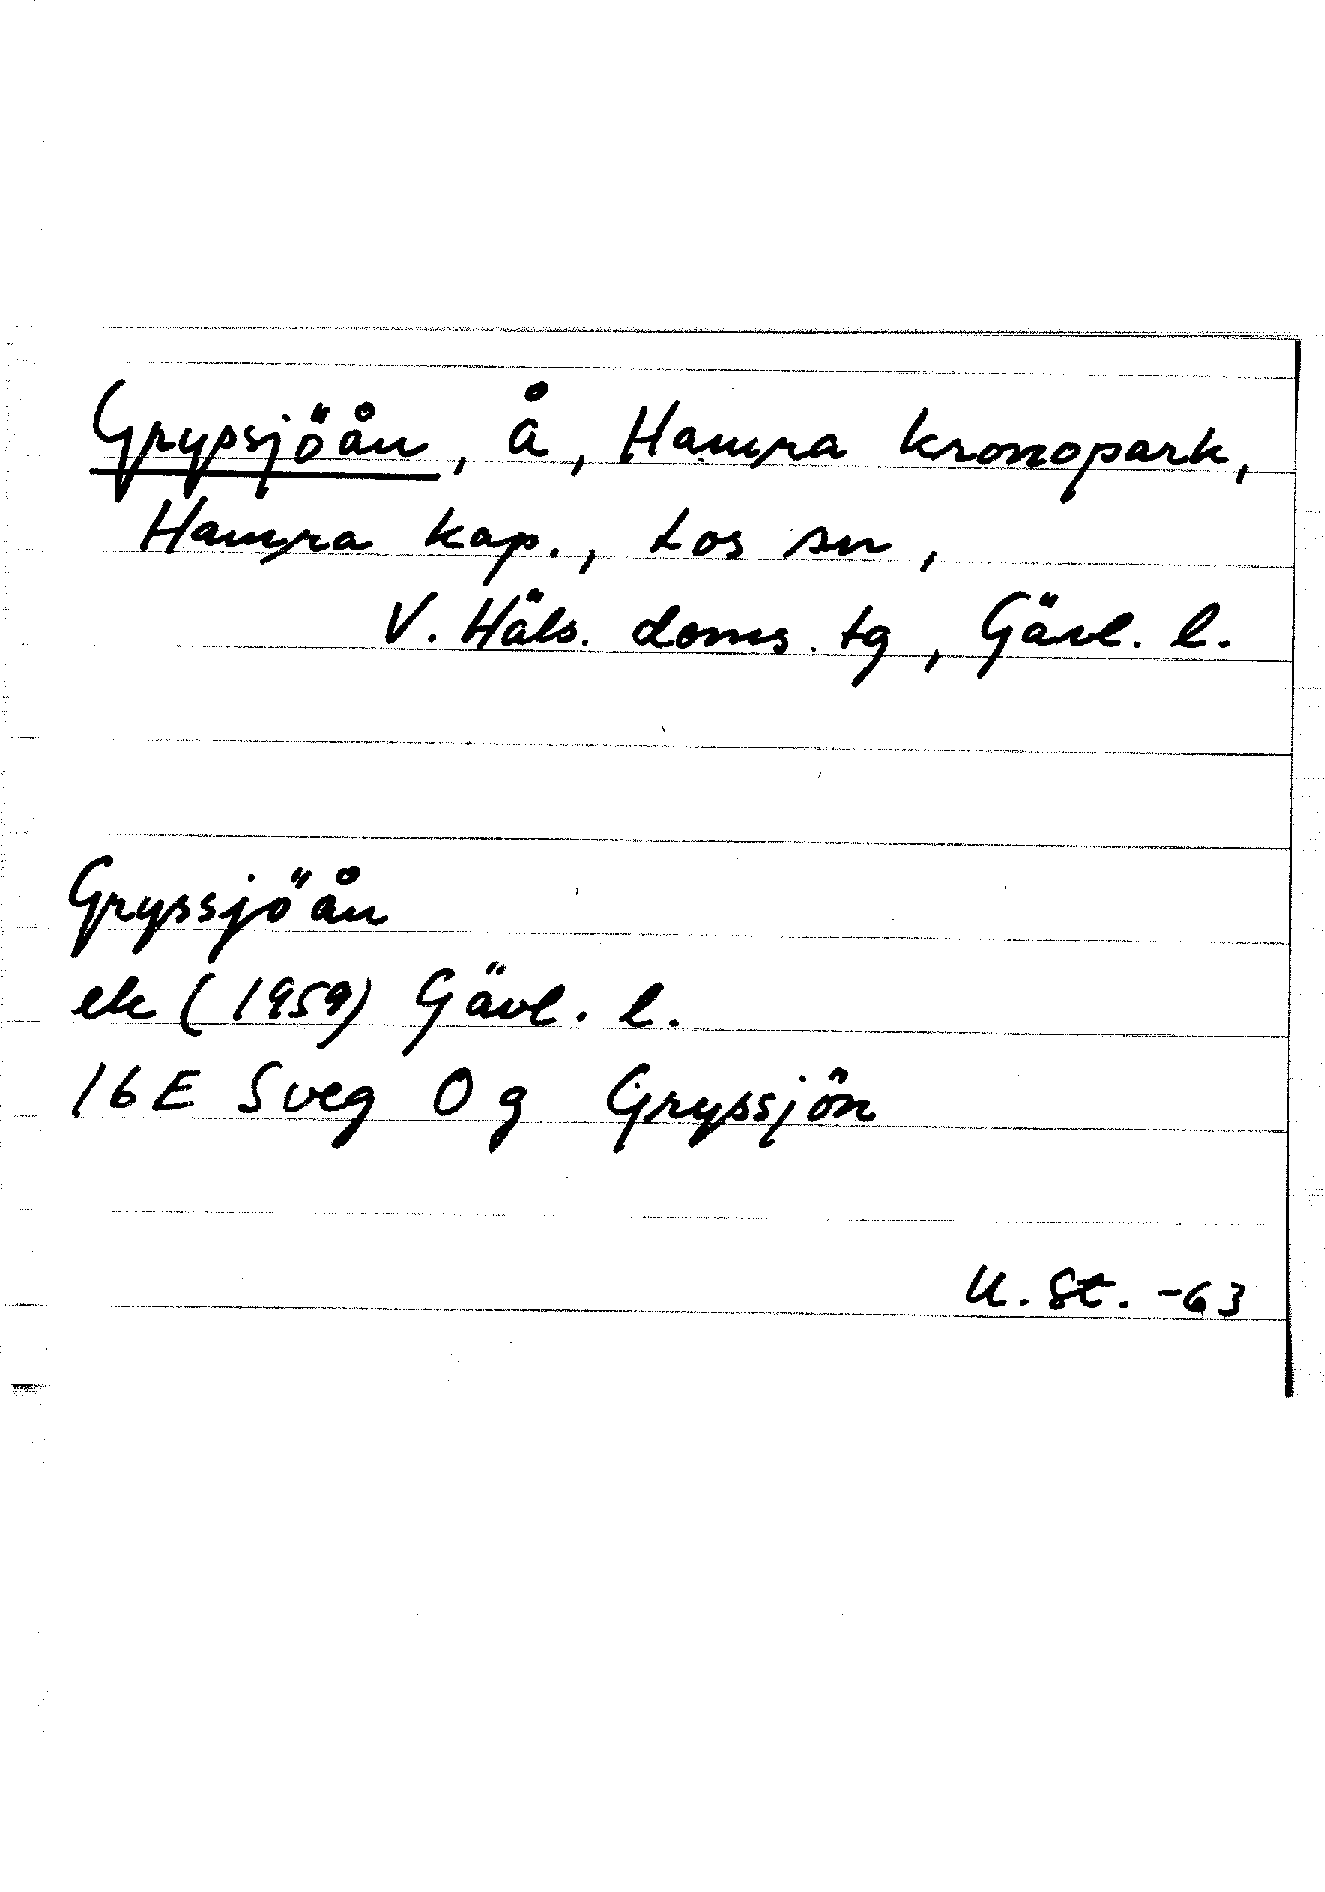 Grypsjöån, å, Hamra kronopark,
Hamra kap., Los sn,
V. Häls. doms. tg, Gävl. l.
Gryssjöån
ek (1959) Gävl. l.
16E Sveg O g Gryssjön
U. St. -63